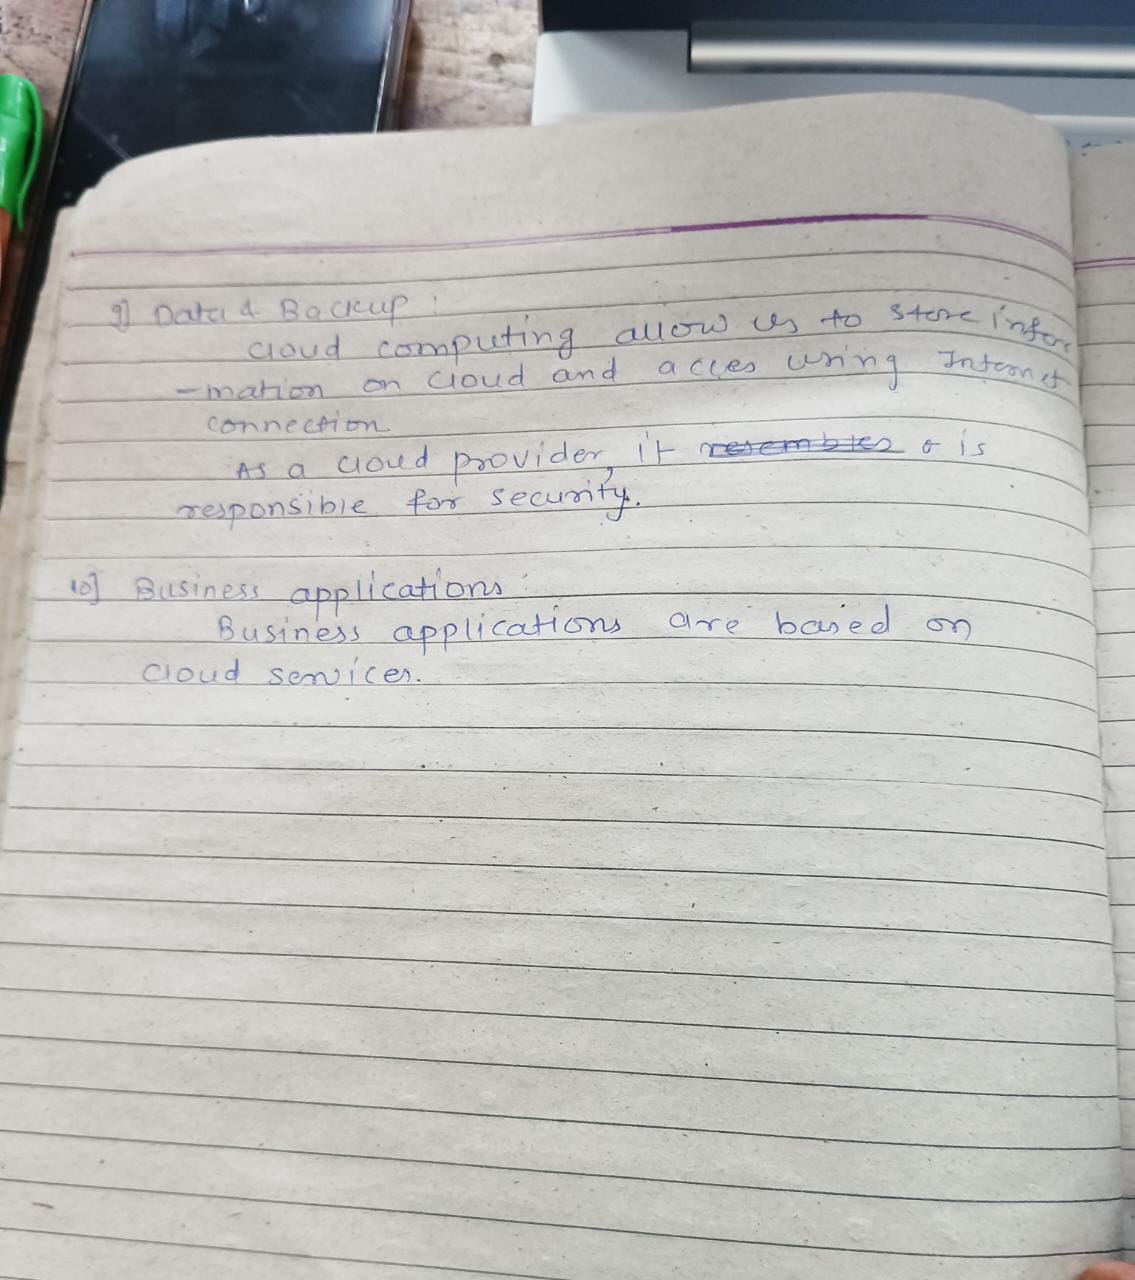 9] Data & Backup :
Cloud computing allow us to store infor
-mation on cloud and acces using Internet
connection.
As a cloud provider, it resembles is
responsible for security.
10] Business applications :
Business applications are based on
cloud services.